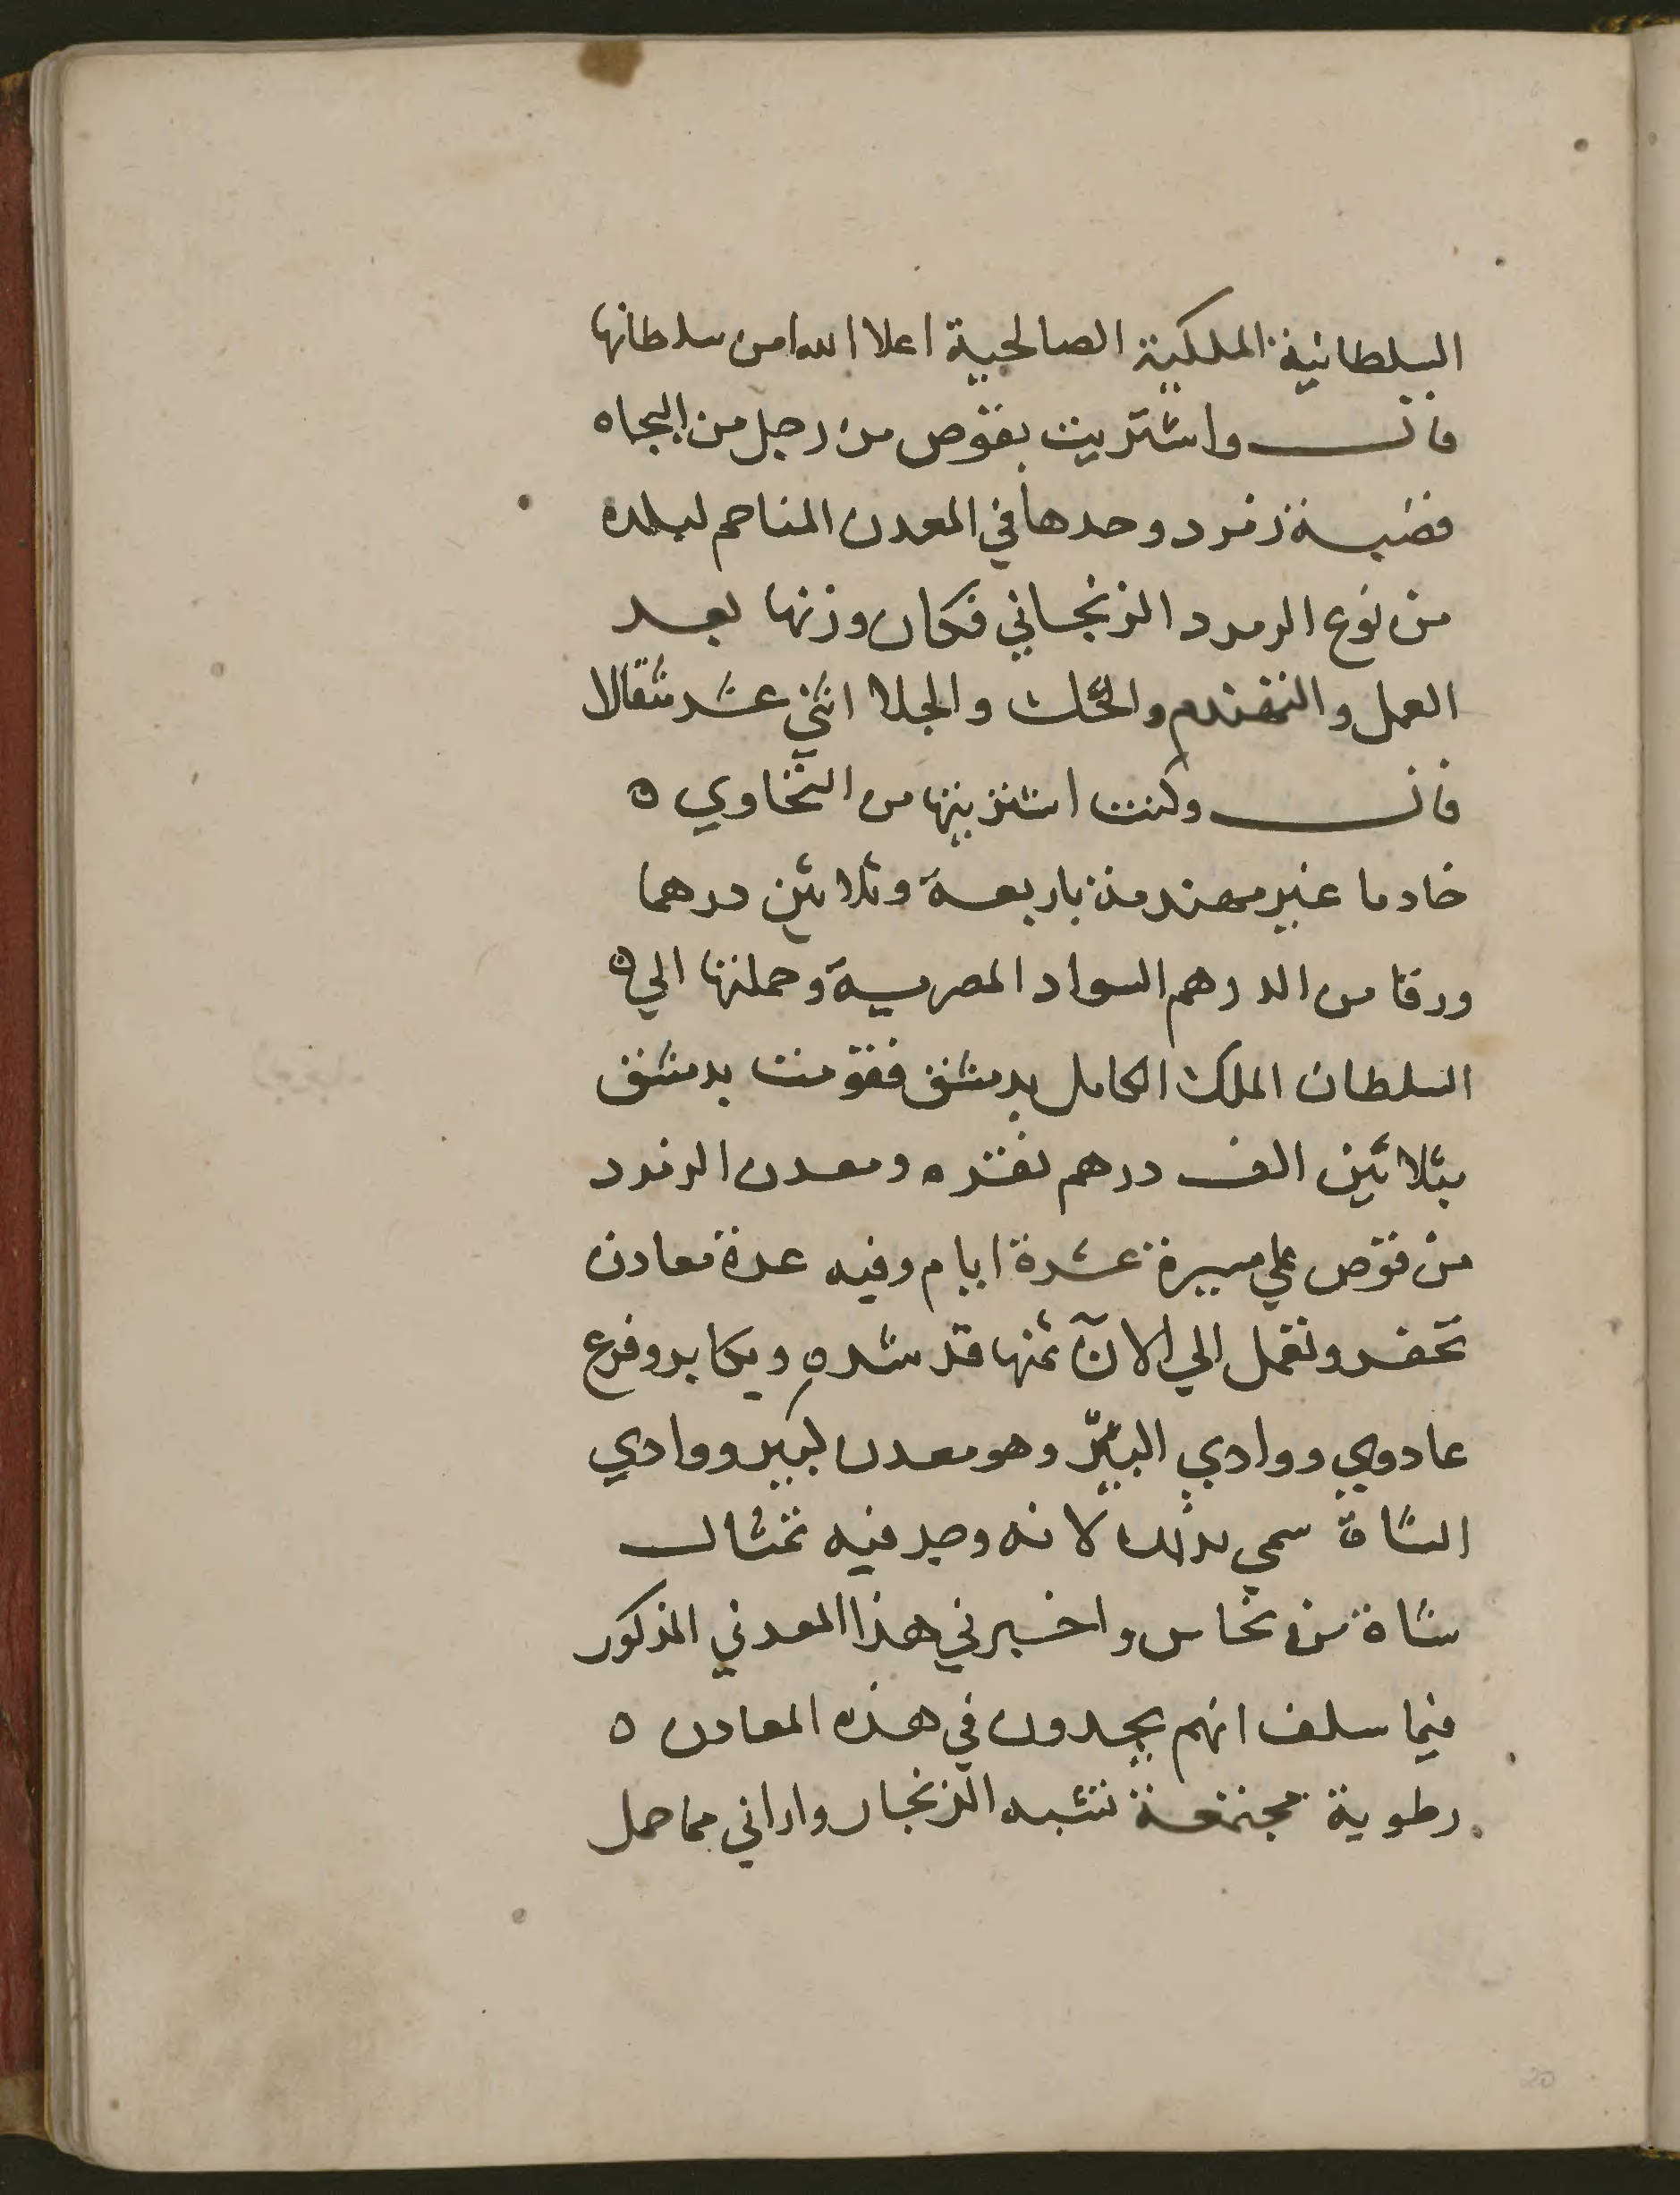 السلطانية الملكية الصالحية اعلا الله امن سلطانها
قال واشتريت بقوص من رجل من البجاه
قضبة زمرد وحدها في المعدن المتاحم لبلده
من نوع الزمرد الزنجاني فكان وزنها بعد
العمل والتهندم والحك والجلا اثني عشر مثقالا
قال وكنت اشتريتها من التخاوي ه
خاد ما غير مهندمة باربعة وثلاثين درهما
ورقا من الدرهم السواد المصرية وحملتها الي ه
السلطان الملك الكامل بدمشق فقومت بدمشق
بثلاثين الف درهم نقره ومعدن الزمرد
من قوص علي مسيرة عشرة ايام وفيه عدة معادن
تحفر وتعمل الي الآن ثمنها قد شده ويكابر وفرع
عادوي ووادي البئر وهو معدن كبير ووادي
الشاة سمي بذلك لانه وجد فيه تمثال
شاة من نحاس واخبرني هذا المعدني المذكور
فيما سلف انهم يجدون في هذه المعادن ه
رطوبة مجتمعة تشبه الزنجار واراني مما حمل